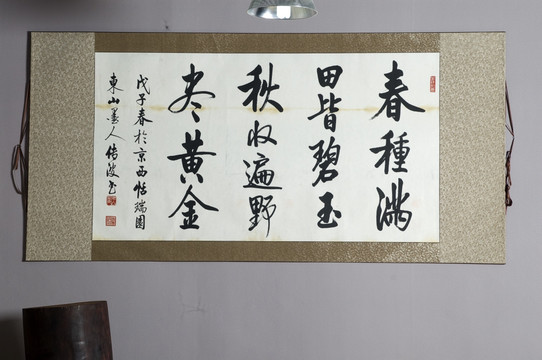 春種满
田皆碧玉
秋收遍野
尽黄金
戊子春於京西恬瑞園
東山墨人传波书